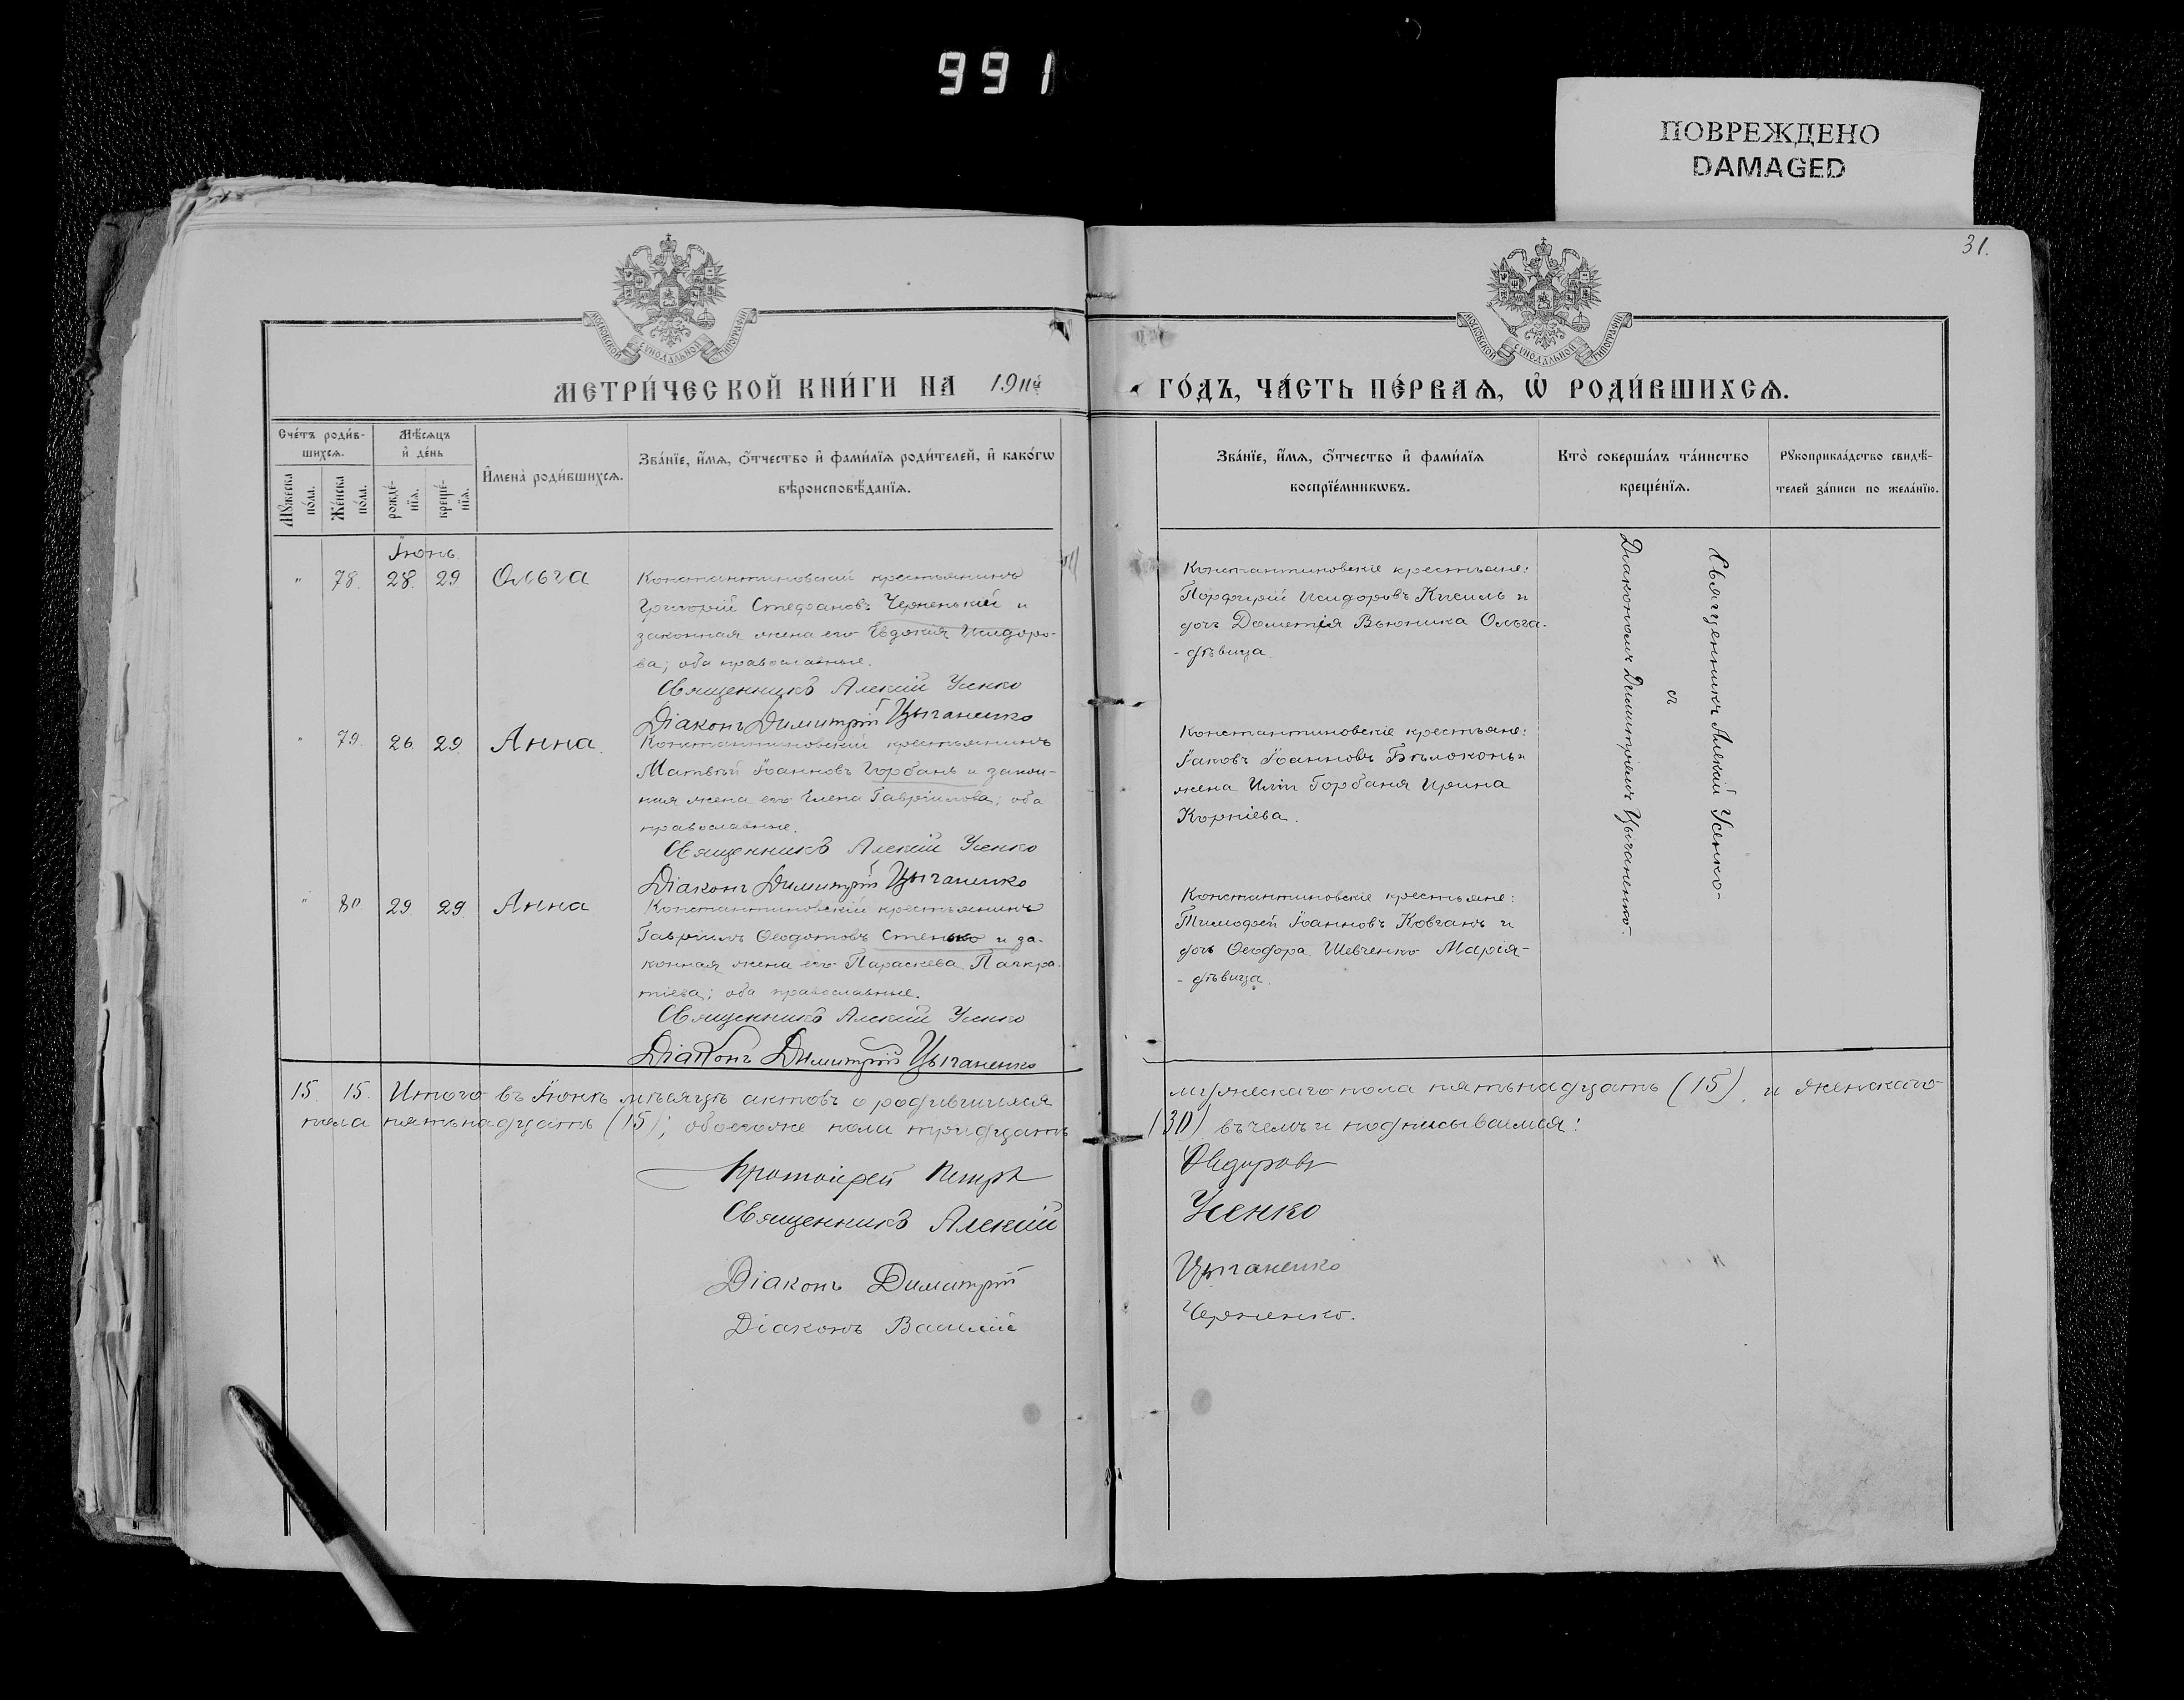 991
ПОВРЕЖДЕНО
DAMAGED
31.
МОСКОВСКОЙ СѴНОДАЛЬНОЙ ТИПОГРАФІИ
МОСКОВСКОЙ СѴНОДАЛЬНОЙ ТИПОГРАФІИ
МЕТРИ́ЧЕСКОЙ КНИ́ГИ НА 1911й
ГО́ДЪ, ЧА́СТЬ ПЕ́РВАѦ, Ѡ҆ РОДИ́ВШИХСѦ.
Сче́тъ роди́в-
шихсѧ.
Мꙋ́жеска по́ла.
Же́нска по́ла.
Мѣ́сѧцъ
и҆ де́нь
рожде́-
нїѧ.
креще́-
нїѧ.
И҆мена̀ роди́вшихсѧ.
Зва́нїе, и҆́мѧ, ѻ҆́тчество и҆ фами́лїѧ роди́телей, и҆ како́гѡ
вѣроисповѣ́данїѧ.
Зва́нїе, и҆́мѧ, ѻ҆́тчество и҆ фами́лїѧ
воспрїе́мникѡвъ.
Кто̀ соверша́лъ та́инство
креще́нїѧ.
Рꙋкоприкла́дство свидѣ́-
телей за́писи по жела́нїю.
Іюнь
" 78. 28. 29 Ольга
Константиновскій крестьянинъ
Григорій Стефановъ Черненькій и
законная жена его Евдокія Исидоро-
ва; оба православные.
Священникъ Алексій Усенко
Діаконъ Димитрій Цыганенко
Константиновскіе крестьяне:
Порфирій Исидоровъ Кисиль и
дочь Дометія Вьюника Ольга-
- дѣвица.
" 79. 26. 29. Анна.
Константиновскій крестьянинъ
Матвѣй Іоанновъ Горбань и закон-
ная жена его Елена Гавріилова; оба
православные.
Священникъ Алексій Усенко
Діаконъ Димитрій Цыганенко
Константиновскіе крестьяне:
Іаковъ Іоанновъ Бѣлоконь и
жена Иліи Горбаня Ирина
Корніева.
" 80 29. 29. Анна
Константиновскій крестьянинъ
Гавріилъ Ѳеодотовъ Стенько и за-
конная жена его Параскева Панкра-
тіева; оба православные.
Священникъ Алексій Усенко
Діаконъ Димитрій Цыганенко
Константиновскіе крестьяне:
Тимофей Іоанновъ Ковганъ и
дочь Ѳеодора Шевченко Марія-
- дѣвица.
Священникъ Алексій Усенко-
съ
Діакономъ Димитріемъ Цыганенко.
15. 15. Итого въ Іюнѣ мѣсяцѣ актовъ о родившихся
мужескаго пола пятьнадцать (15), и женскаго
пола пятьнадцать (15); обоегоже пола тридцать
(30) въ чемъ и подписываемся:
Протоіерей Петръ
Ѳедоровъ
Священникъ Алексій
Усенко
Діаконъ Димитрій
Цыганенко
Діаконъ Василій
Черненко.